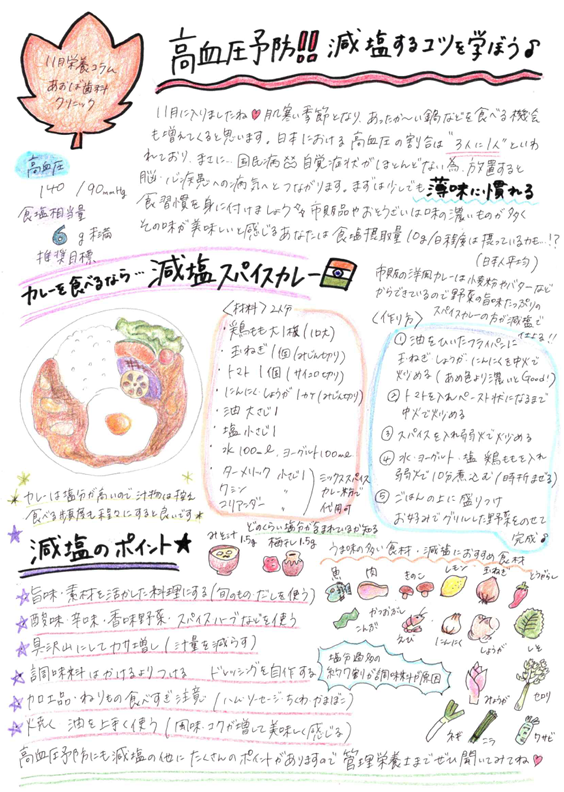 11月栄養コラム
あおば歯科
クリニック
高血圧予防!! 減塩するコツを学ぼう♪
11月に入りましたね♥肌寒い季節となり、あったか〜い鍋などを食べる機会
も増えてくると思います。日本における高血圧の割合は"3人に1人"といわ
れており、まさに…国民病 自覚症状がほとんどない為、放置すると
脳・心疾患への病気へとつながります。まずは少しでも薄味に慣れる
食習慣を身に付けましょう 市販品やおそうざいは味の濃いものが多く
その味が美味しいと感じるあなたは食塩摂取量10g/日程度は摂っているかも…!?
(日本人平均)
高血圧
140/90mmHg
食塩相当量
6g未満
推奨目標
カレーを食べるなら… 減塩スパイスカレー
市販の洋風カレーは小麦粉やバターなど
からできているので野菜の旨味たっぷりの
スパイスカレーの方が減塩で
仕上る!!
〈材料〉2人分
・鶏もも大1枚(1口大)
・玉ねぎ1個(みじん切り)
・トマト1個(サイコロ切り)
・にんにく・しょうが1カケ(みじん切り)
・油 大さじ1
・塩 小さじ1
・水100ml、ヨーグルト100ml
・ターメリック 小さじ1
クミン 〃
コリアンダー 〃
ミックススパイス
カレー粉で
代用可
〈作り方〉
① 油をひいたフライパンに
玉ねぎ しょうが にんにくを中火で
炒める(あめ色より濃いとGood!)
② トマトを入れペースト状になるまで
中火で炒める
③ スパイスを入れ弱火で炒める
④ 水・ヨーグルト・塩 鶏ももを入れ
弱火で10分煮込む(時折まぜる)
⑤ ごはんの上に盛りつけ
お好みでグリルした野菜をのせて
完成♪
カレーは塩分が高いので汁物は控え
食べる頻度も程々にすると良いです
どのくらい塩分が含まれているか知る
みそ汁1.5g 梅干し1.5g
減塩のポイント★
★旨味・素材を活かした料理にする(旬のもの・だしを使う)
★酸味・辛味・香味野菜・スパイスハーブなどを使う
★具沢山にしてカサ増し(汁量を減らす)
★調味料はかけるよりつける ドレッシングを自作する
★加工品・ねりもの食べすぎ注意(ハム・ソーセージ・ちくわ・かまぼこ)
★焼く・油を上手く使う(風味・コクが増して美味しく感じる)
うま味の多い食材・減塩におすすめ食材
魚
肉
きのこ
レモン
玉ねぎ
とうがらし
かつおぶし
こんぶ
えび
にんにく
しょうが
しそ
みょうが
セロリ
ネギ
ニラ
ワサビ
塩分過多の
約7割が調味料が原因
高血圧予防にも減塩の他にたくさんのポイントがありますので 管理栄養士までぜひ聞いてみてね♥